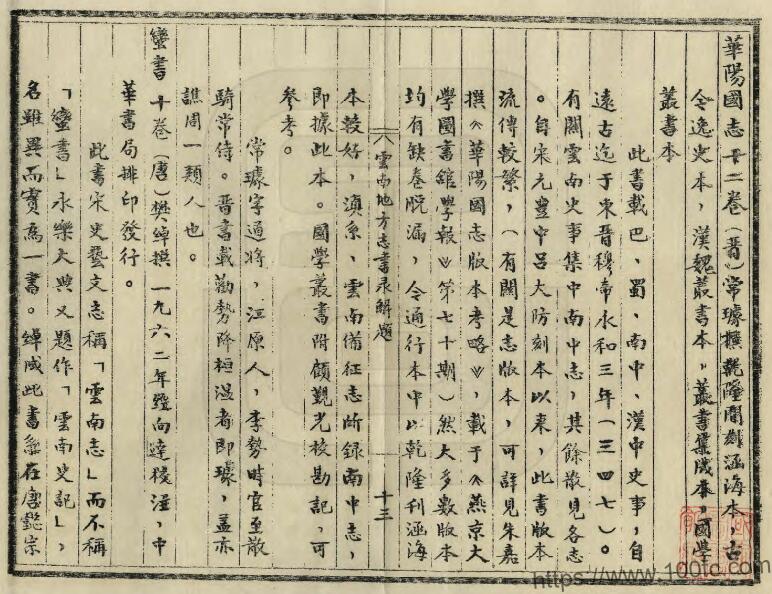 華陽國志十二卷（晋）常璩撰乾隆間刻涵海本，古
今逸史本，漢魏叢書本，叢書集成本，國學
叢書本
此書載巴、蜀、南中、漢中史事，自
遠古迄于東晋穆帝永和三年（三四七）。
有關雲南史事集中南中志，其餘散見各志
。自宋元豐中呂大防刻本以來，此書版本
流傳較繁，（有關是志版本，可詳見朱嘉
撰《華陽國志版本考略》，載于《燕京大
學圖書館學報》第七十期）然大多數版本
均有缺卷脱漏，今通行本中以乾隆刊涵海
雲南地方志書录解題
十三
本較好，滇系，雲南備征志所録南中志，
即據此本。國學叢書附顧觀光校勘記，可
參考。
常璩字通將，江原人，李勢時官至散
騎常侍。晋書載勸勢降桓温者即璩，盖亦
譙周一類人也。
蠻書 十卷（唐）樊綽撰 一九六二年 向達校注，中
華書局排印發行。
此書宋史藝文志稱「雲南志」而不稱
「蠻書」永樂大典又題作「雲南史記」，
名雖異而實為一書。綽成此書 在唐懿宗
https://www.100fc.com